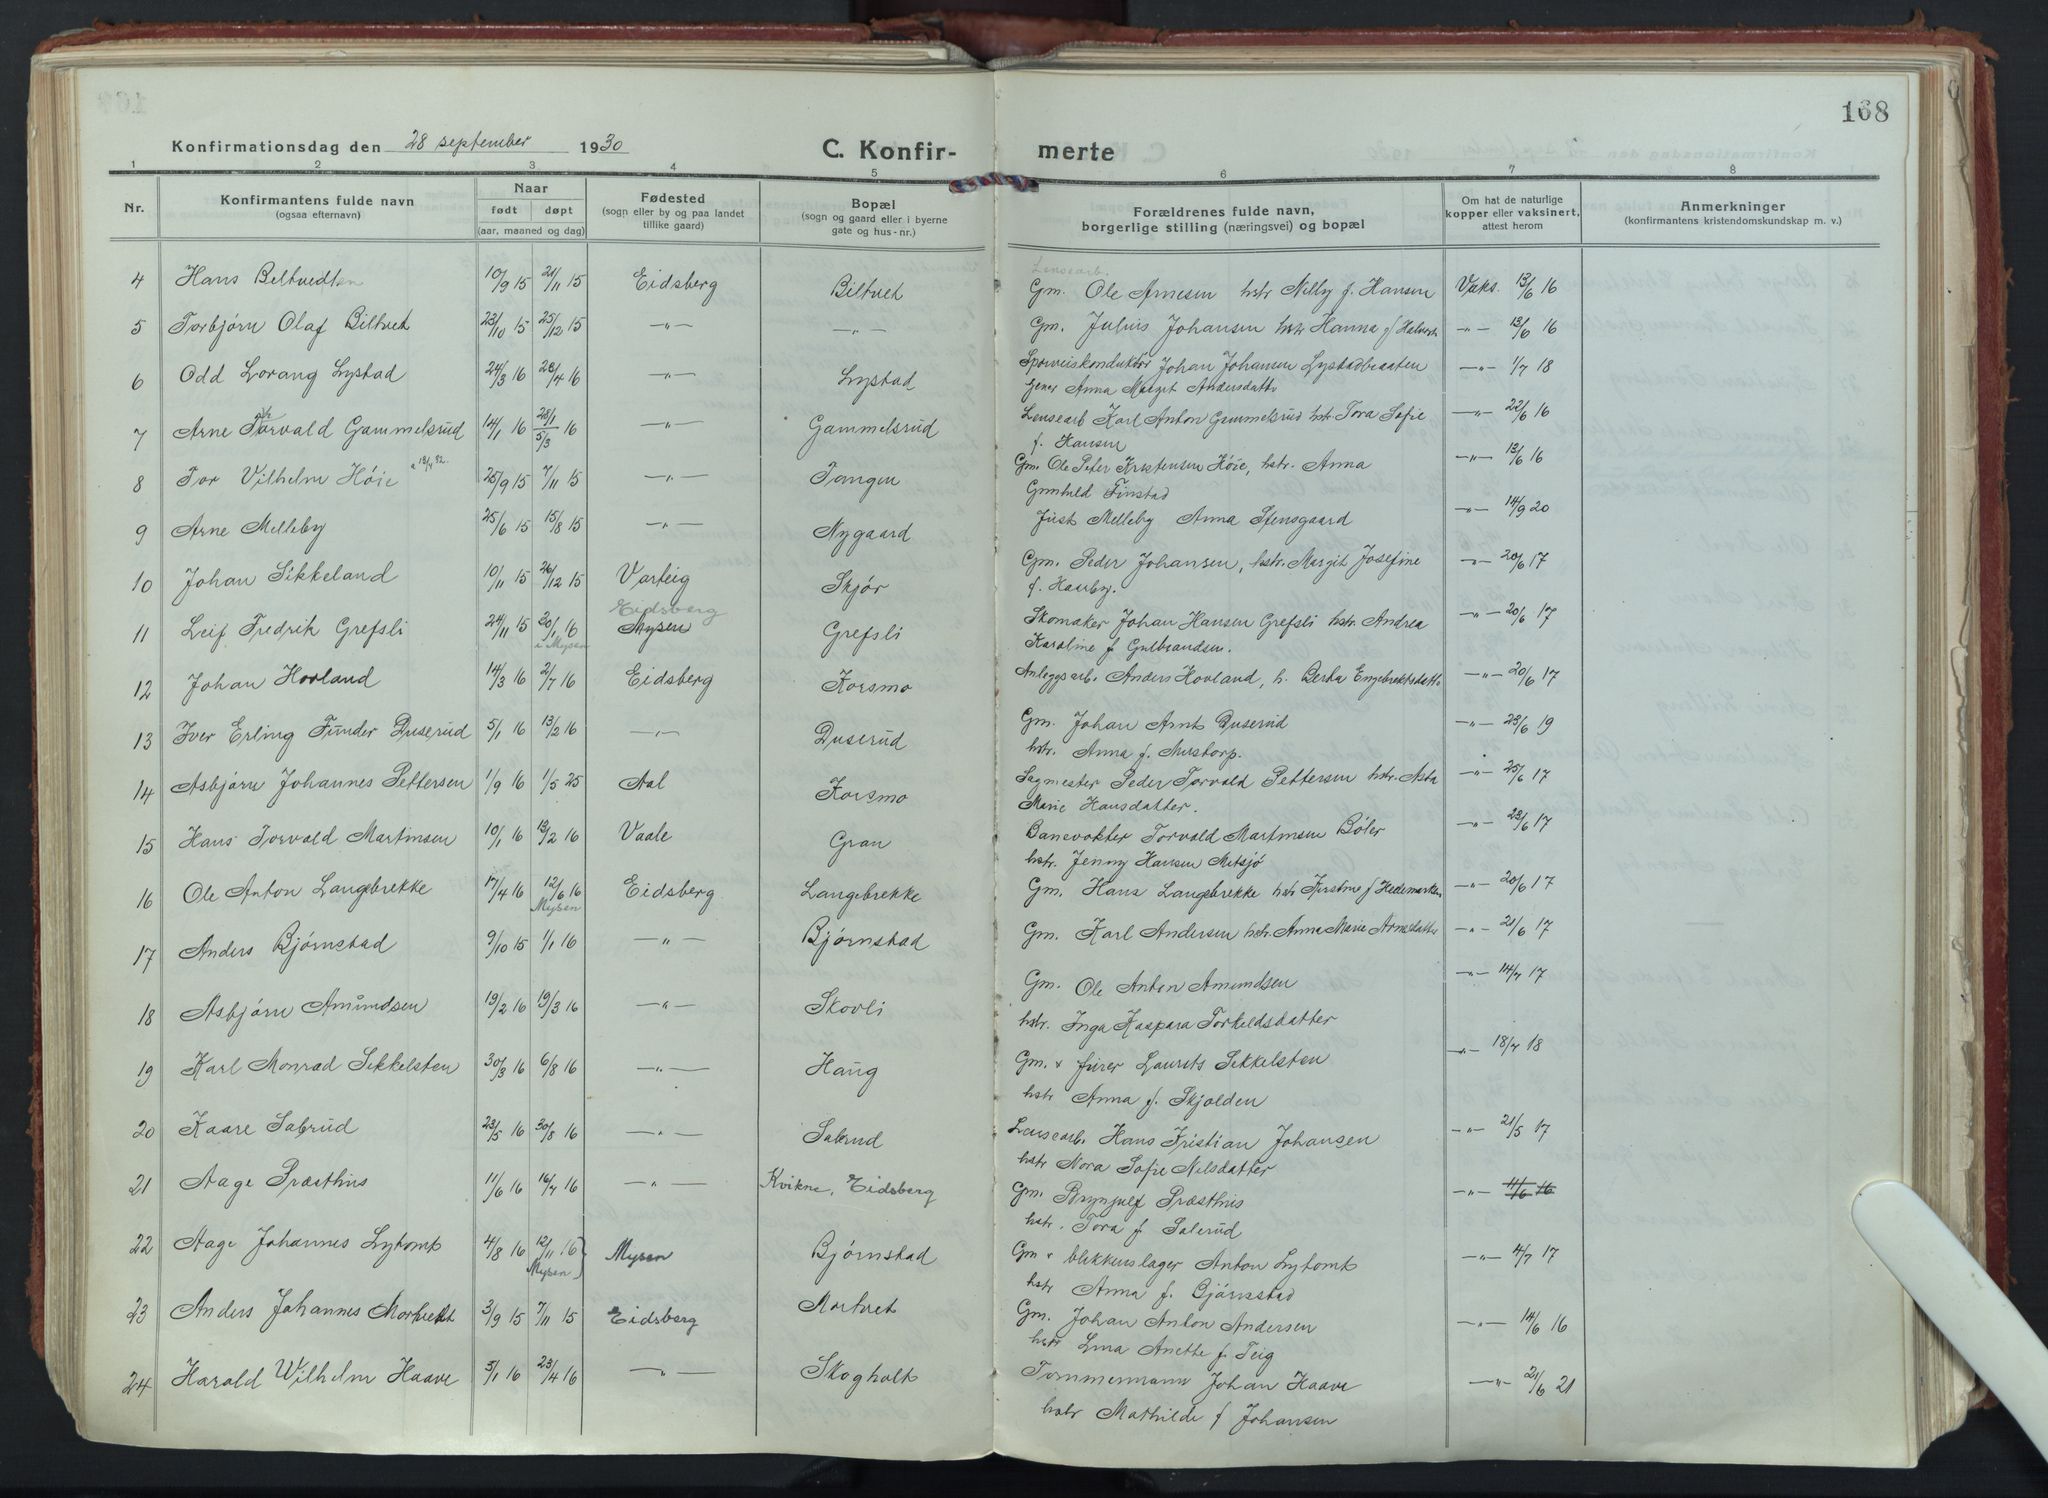 168
Konfirmationsdag den 28 september 1930
C. Konfir-
merte
1 2 3 4 5 6 7 8
Nr.
Konfirmantens fulde navn
(ogsaa efternavn)
Naar
født døpt
(aar, maaned og dag)
Fødested
(sogn eller by og paa landet
tillike gaard)
Bopæl
(sogn og gaard eller i byerne
gate og hus-nr.)
Forældrenes fulde navn,
borgerlige stilling (næringsvei) og bopæl
Om hat de naturlige
kopper eller vaksinert,
attest herom
Anmerkninger
(konfirmantens kristendomskundskap m. v.)
Lensearb.
4 Hans Biltvedten 10/9 15 21/11 15 Eidsberg Biltvet Gm. Ole Arnesen hstr Nelly f. Hansen Vaks. 13/6 16
5 Torbjørn Olaf Biltvet 23/10 15 25/12 15 —"— —"— Gm. Julius Johansen hstr Hanna f Halvors —"— 13/6 16
6 Odd Lorang Lystad 24/3 16 28/4 16 —"— Lystad Sporveiskonduktør Johan Johansen Lystadbraaten —"— 1/7 18
Anna Margit Andersdatte
7 Arne Torvald Gammelsrud 14/1 16 28/1 5/3 16 —"— Gammelsrud Lensearb Karl Anton Gammelsrud hstr. Tora Sofie —"— 22/6 16
f. Hansen
8 Tor Vilhelm Høie 25/9 15 7/11 15 —"— Tangen Gm. Ole Peter Kristensen Høie, hstr. Anna —"— 13/6 16
Gunhild Finstad
9 Arne Melleby 25/6 15 15/8 15 —"— Nygaard Just Melleby Anna Stensgaard —"— 14/9 20
10 Johan Sikkeland 10/11 15 26/12 15 Varteig Skjør Gm. Peder Johansen, hstr. Margit Josefine —"— 20/6 17
f. Haarby.
Eidsberg
11 Leif Fredrik Grefsli 24/11 15 20/1 16 Mysen Grefsli Skomaker Johan Hansen Grefsli hstr Andrea —"— 20/6 17
i Mysen
Karoline f Gulbrandsen.
12 Johan Hovland 14/3 16 2/7 16 Eidsberg Korsmo Anleggsarb. Anders Hovland, h. Berta Engebrektsdatte —"— 20/6 17
13 Iver Erling Funder Duserud 5/1 16 13/2 16 —"— Duserud Gm. Johan Arnt Duserud —"— 23/6 19
hstr. Anna f. Aurstorp.
14 Asbjørn Johannes Pettersen 1/9 16 1/5 25 Aal Korsmo Sagmester Peder Torvald Pettersen hstr. Asta —"— 25/6 17
Marie Hansdatter.
15 Hans Torvald Martinsen 10/1 16 13/2 16 Vaale Gran Banevokter Torvald Martinsen Bøler —"— 23/6 17
hstr. Jenny Hansen Mitsjø
16 Ole Anton Langebrekke 17/4 16 12/6 16 Eidsberg Langebrekke Gm. Hans Langebrekke hstr Kristine f Hedemarken —"— 20/6 17
Mysen
17 Anders Bjørnstad 9/10 15 1/1 16 —"— Bjørnstad Gm. Karl Andersen hstr. Anna Marie Arnesdatte —"— 21/6 17
18 Asbjørn Amundsen 19/2 16 19/3 16 —"— Skovli Gm. Ole Anton Amundsen —"— 14/7 17
hstr. Inga Kaspara Torkeldsdatter
19 Karl Monrad Sikkelsten 30/3 16 6/8 16 —"— Haug Gm. & furer Laurits Sikkelsten —"— 18/7 18
hstr Anna f. Skjolden
20 Kaare Sabrud 23/5 16 30/8 16 —"— Sabrud Lensearb. Hans Kristian Johansen —"— 21/5 17
hstr Nora Sofie Nilsdatter
21 Aage Præsthus 11/6 16 16/7 16 —"— Kvikne, Eidsberg Gm. Brynjulf Præsthus —"— 11/6 16
hstr. Tora f. Salerud
22 Aage Johannes Lytomt 4/8 16 12/11 16 Mysen Bjørnstad Gm & blikkenslager Anton Lytomt —"— 4/7 17
Mysen
hstr Anna f. Bjørnstad
23 Anders Johannes Mortvedt 3/9 15 7/11 15 Eidsberg Mortvet Gm. Johan Anton Andersen —"— 14/6 16
hstr Lina Anette f Teig
24 Harald Wilhelm Haave 5/1 16 23/4 16 —"— Skogholt Tømmermann Johan Haave —"— 21/6 21
hstr Mathilde f Johansen